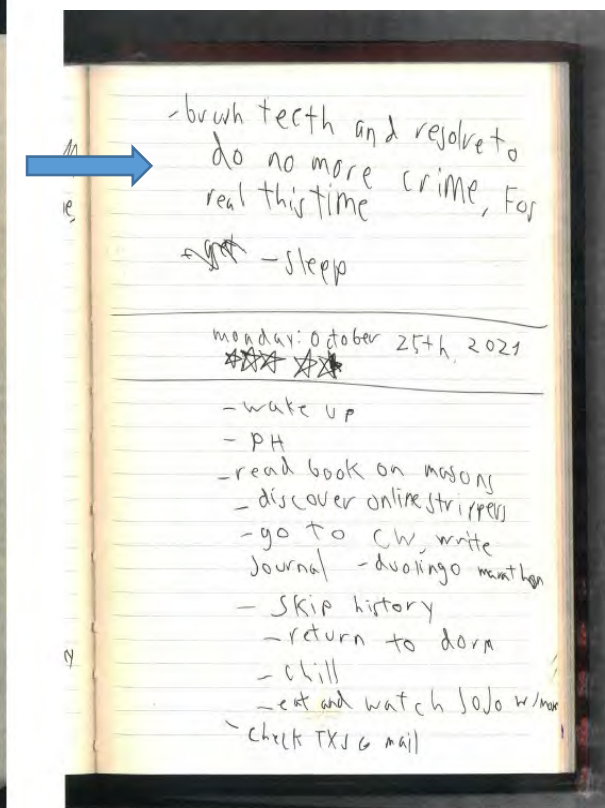 -bruwh teeth and resolve to
do no more crime, For
real this time
- slepp
monday: October 25th, 2021
- wake up
- PH
-read book on masons
- discover online strippers
- go to CW, write
Journal - duolingo marathon
- Skip history
- return to dorm
- Chill
- eat and watch JoJo w/
- check TXJ G mail